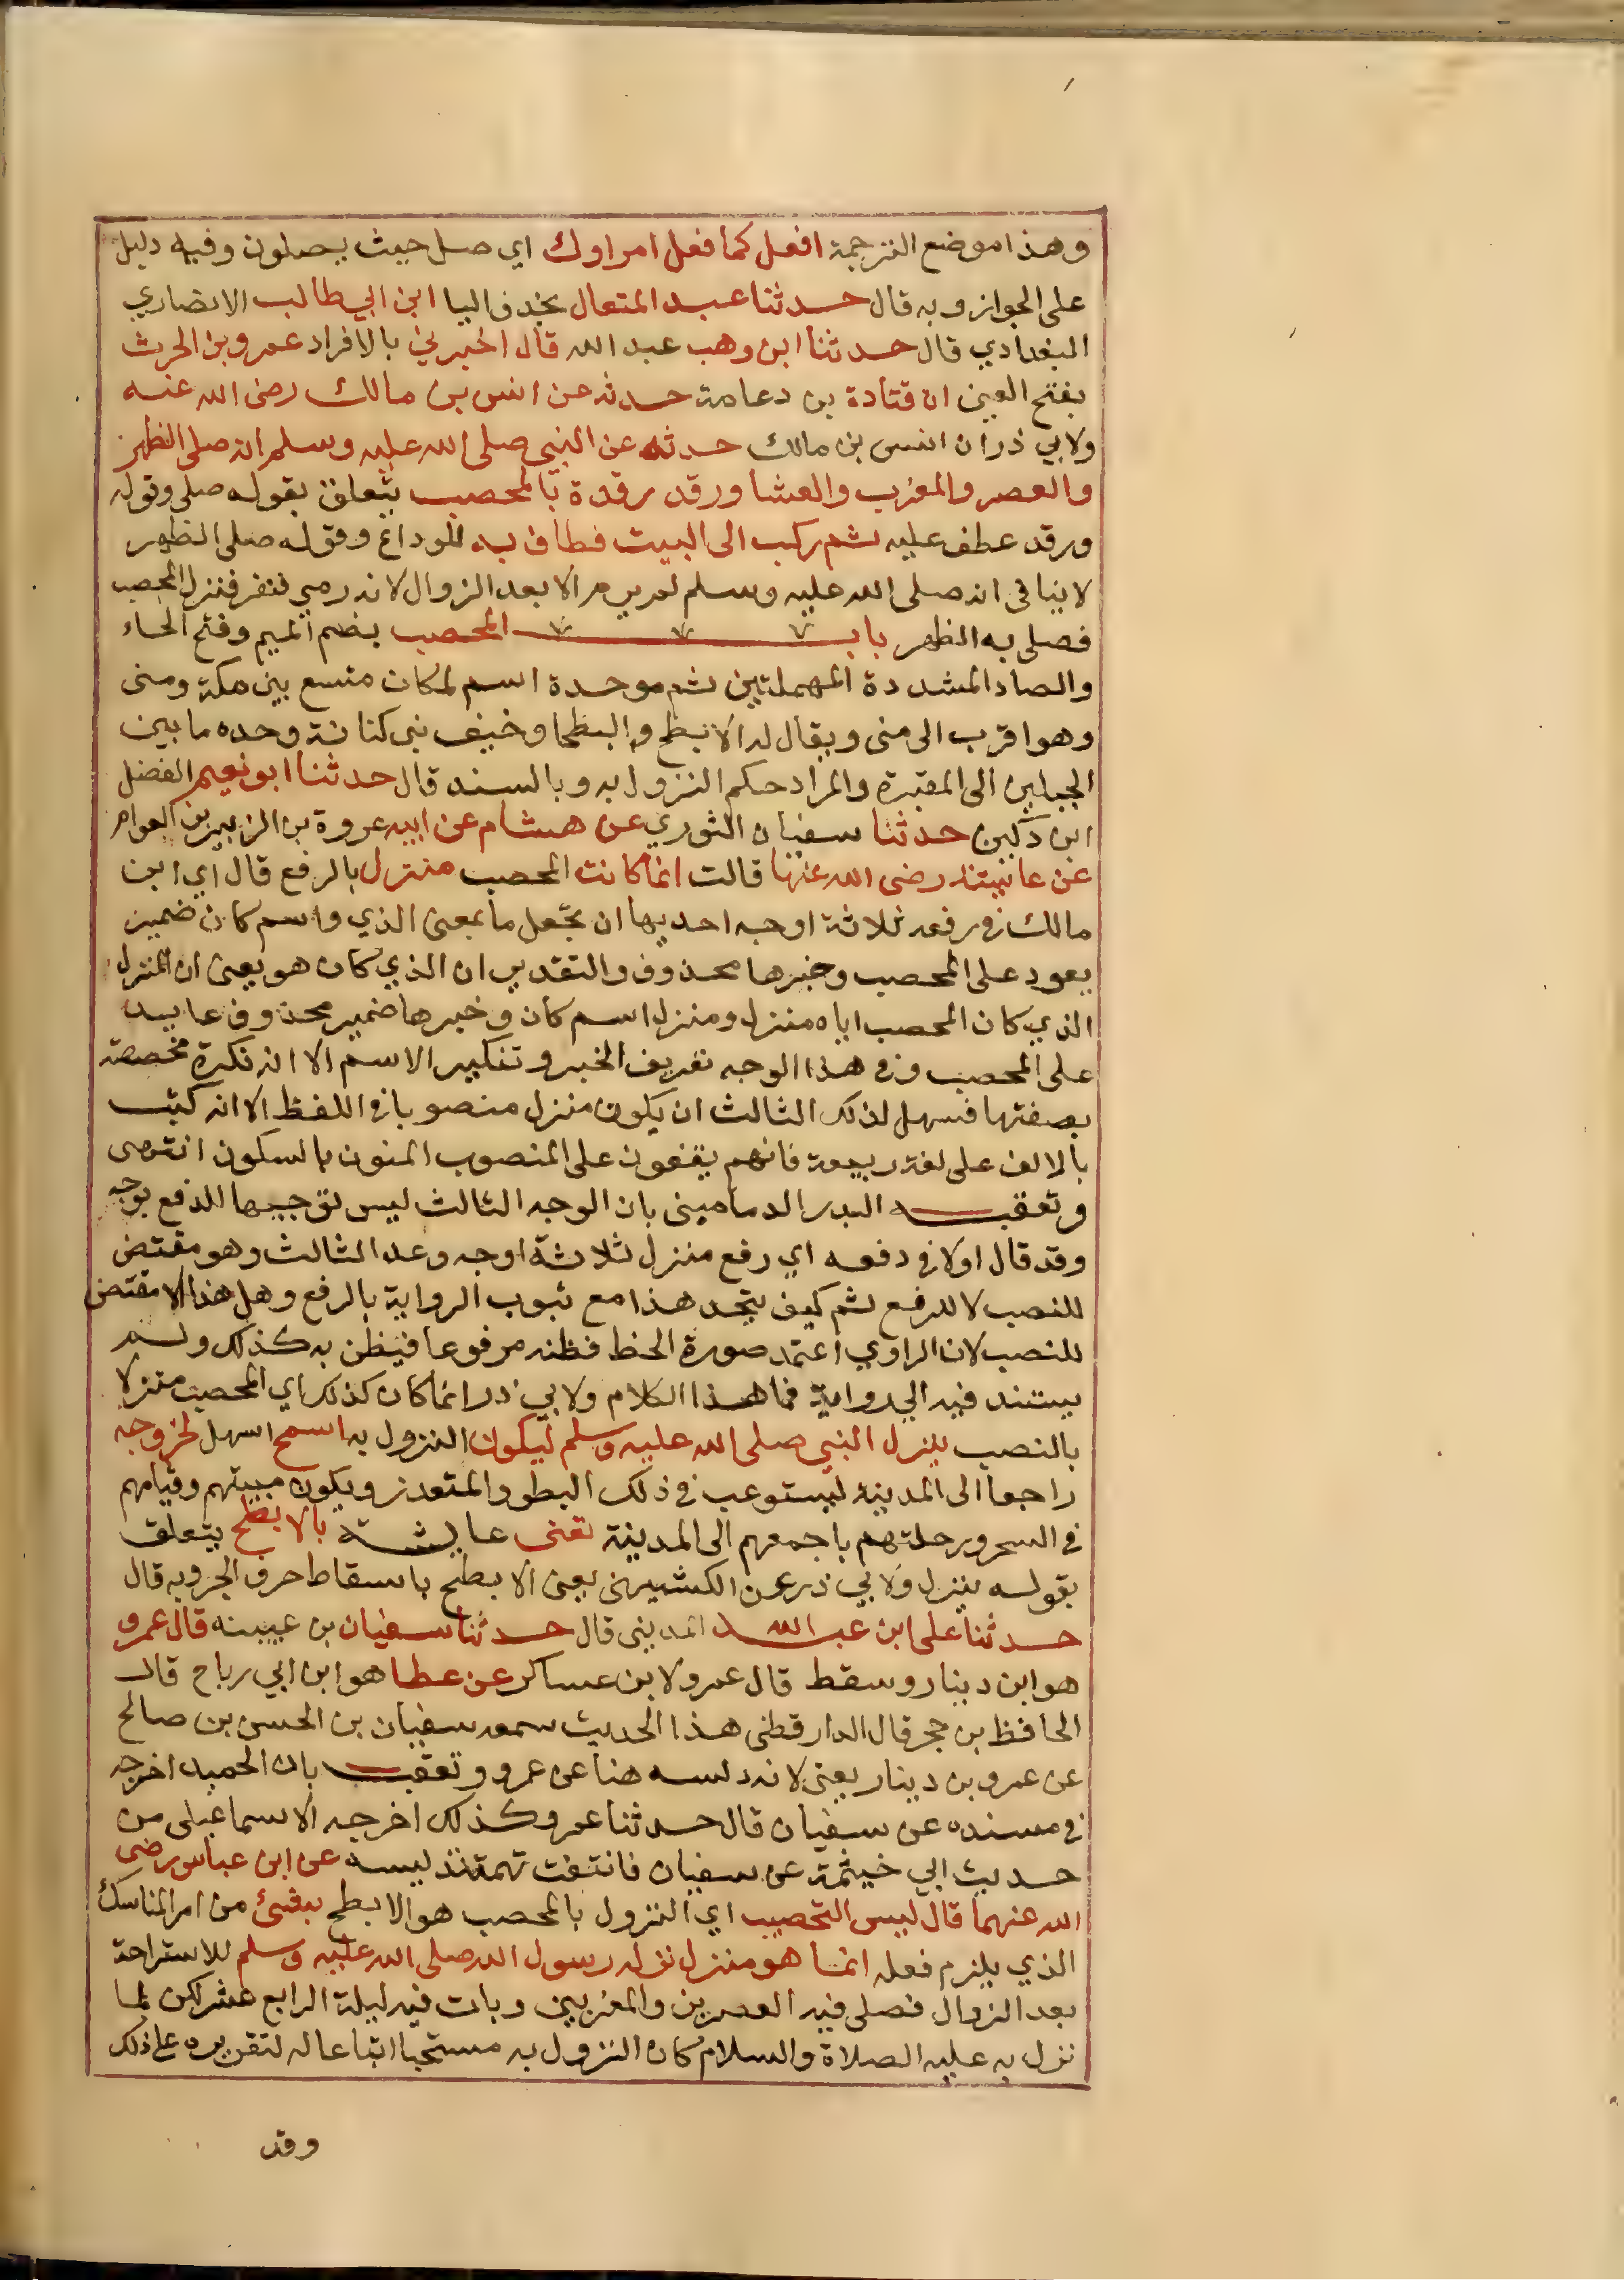 وهذا موضع الترجمة افعل كما فعل امراوك اي صل حيث يصلون وفيه دليل
على الجواز وبه قال حدثنا عبد المتعال بحذف اليا ابن ابي طالب الانصاري
البغدادي قال حدثنا ابن وهب عبد الله قال اخبرني بالافراد عمرو بن الحرث
بفتح العين ان قتادة بن دعامة حدثه عن انس بن مالك رضى الله عنه
ولابي ذر ان انس بن مالك حدثه عن النبي صلى الله عليه وسلم انه صلى الظهر
والعصر والمغرب والعشا ورقد رقدة بالمحصب يتعلق بقوله صلى وقوله
ورقد عطف عليه ثم ركب الى البيت فطاف به للوداع وقوله صلى الظهر
لا ينافي انه صلى الله عليه وسلم لم يرم الا بعد الزوال لانه رمي فنفر فنزل المحصب
فصلى به الظهر باب المحصب بضم الميم وفتح الحاء
والصاد المشددة المهملتين ثم موحدة اسم لمكان متسع بين مكة ومنى
وهو اقرب الى منى ويقال له الابطح والبطحا وخيف بنى كنانة وحده ما بين
الجبلين الى المقبرة والمراد حكم النزول به وبالسند قال حدثنا ابو نعيم الفضل
ابن دكين حدثنا سفيان الثوري عن هشام عن ابيه عروة بن الزبير بن العوام
عن عايشة رضى الله عنها قالت انما كانت المحصب منزل بالرفع قال اي ابن
مالك في رفعه ثلاثة اوجه احديها ان تجعل ما بمعنى الذي واسم كان ضمير
يعود على المحصب وخبرها محذوف والتقدير ان الذي كان هو يعنى ان المنزل
الذي كان المحصب اياه منزل ومنزل اسم كان وخبرها ضمير محذوف عايد
على المحصب وفي هذا الوجه تعريف الخبر وتنكير الاسم الا انه نكرة مخصصة
بصفتها فسهل لذلك الثالث ان يكون منزل منصوبا في اللفظ الا انه كتب
بالالف على لغة ربيعة فانهم يقفون على المنصوب المنون بالسكون انتهى
وتعقبه البدر الدمامينى بان الوجه الثالث ليس توجيها للرفع بوجه
وقد قال اولا في دفعه اي رفع منزل ثلاثة اوجه وعد الثالث وهو مقتض
للنصب لا للرفع ثم كيف يتجه هذا مع ثبوب الرواية بالرفع وهل هذا الا مقتض
للنصب لان الراوي اعتمد صورة الخط فظنه مرفوعا فينطق به كذلك ولم
يستند فيه الي رواية فما هذا الكلام ولابي ذر انما كان كذلك اي المحصب منزلا
بالنصب ينزل النبي صلى الله عليه وسلم ليكون النزول به اسمح اسهل لخروجه
راجعا الى المدينة ليستوعب في ذلك البطو والمتعذر ويكون مبيتهم وقيامهم
في السحر ورحلتهم باجمعهم الى المدينة تعنى عايشة بالابطح يتعلق
بقوله ينزل ولابي ذر عن الكشميهنى يعنى الابطح باسقاط حرف الجر وبه قال
حدثنا على ابن عبد الله المدينى قال حدثنا سفيان بن عيينه قال عمرو
هو ابن دينار وسقط قال عمرو لابن عساكر عن عطا هو ابن ابي رباح قال
الحافظ بن حجر قال الدارقطنى هذا الحديث سمعه سفيان بن الحسن بن صالح
عن عمرو بن دينار يعنى لانه دلسه هنا عن عمرو وتعقب بان الحميد اخرجه
في مسنده عن سفيان قال حدثنا عمرو كذلك اخرجه الاسماعيلى من
حديث ابي خيثمة عن سفيان فانتفت تهمة تدليسه عن ابن عباس رضى
الله عنهما قال ليس التحصيب اي النزول بالمحصب هو الابطح بشئ من امر المناسك
الذي يلزم فعله انما هو منزل نزله رسول الله صلى الله عليه وسلم للاستراحة
بعد الزوال فصلى فيه العصرين والمغربين وبات فيه ليلة الرابع عشر لكن لما
نزل به عليه الصلاة والسلام كان النزول به مستحبا اتباعا له لتقريره على ذلك
وقد